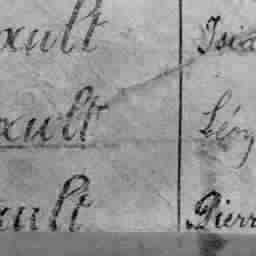 ault Isid
ault Léon
ault Pierr